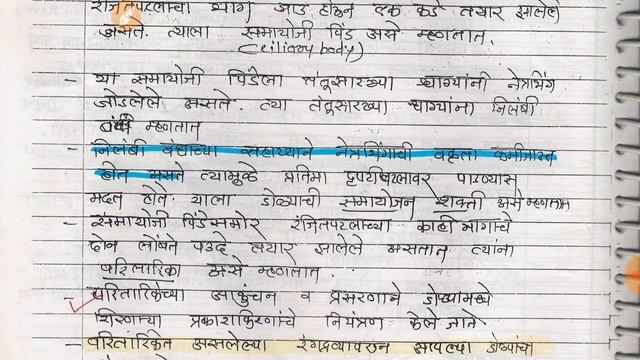 रंजितपटलाचा भाग जाड होऊन एक कडे तयार झालेले
असते. त्याला समायोजी पिंड असे म्हणतात.
(ciliary body)
- या समायोजी पिंडेला तंतूसारख्या धाग्यांनी नेत्रभिंग
जोडलेले असते. त्या तंतूसारख्या धाग्यांना निलंबी
बंध म्हणतात
- निलंबी बंधाच्या सहाय्याने नेत्रभिंगाची वक्रता कमीजास्त
होत असते त्यामुळे प्रतिमा दृष्टीपटलावर पाडण्यास
मदत होते. याला डोळ्याची समायोजन शक्ती असे म्हणतात
- समायोजी पिंडेसमोर रंजितपटलाच्या काही भागाचे
दोन लोंबते पडदे तयार झालेले असतात त्यांना
परितारिका असे म्हणतात.
- परितारिकेच्या आकुंचन व प्रसरणाने डोळ्यामध्ये
शिरणाऱ्या प्रकाशकिरणांचे नियंत्रण केले जाते
- परितारिकेत असलेल्या रंगद्रव्यावरून आपल्या डोळ्यांचा